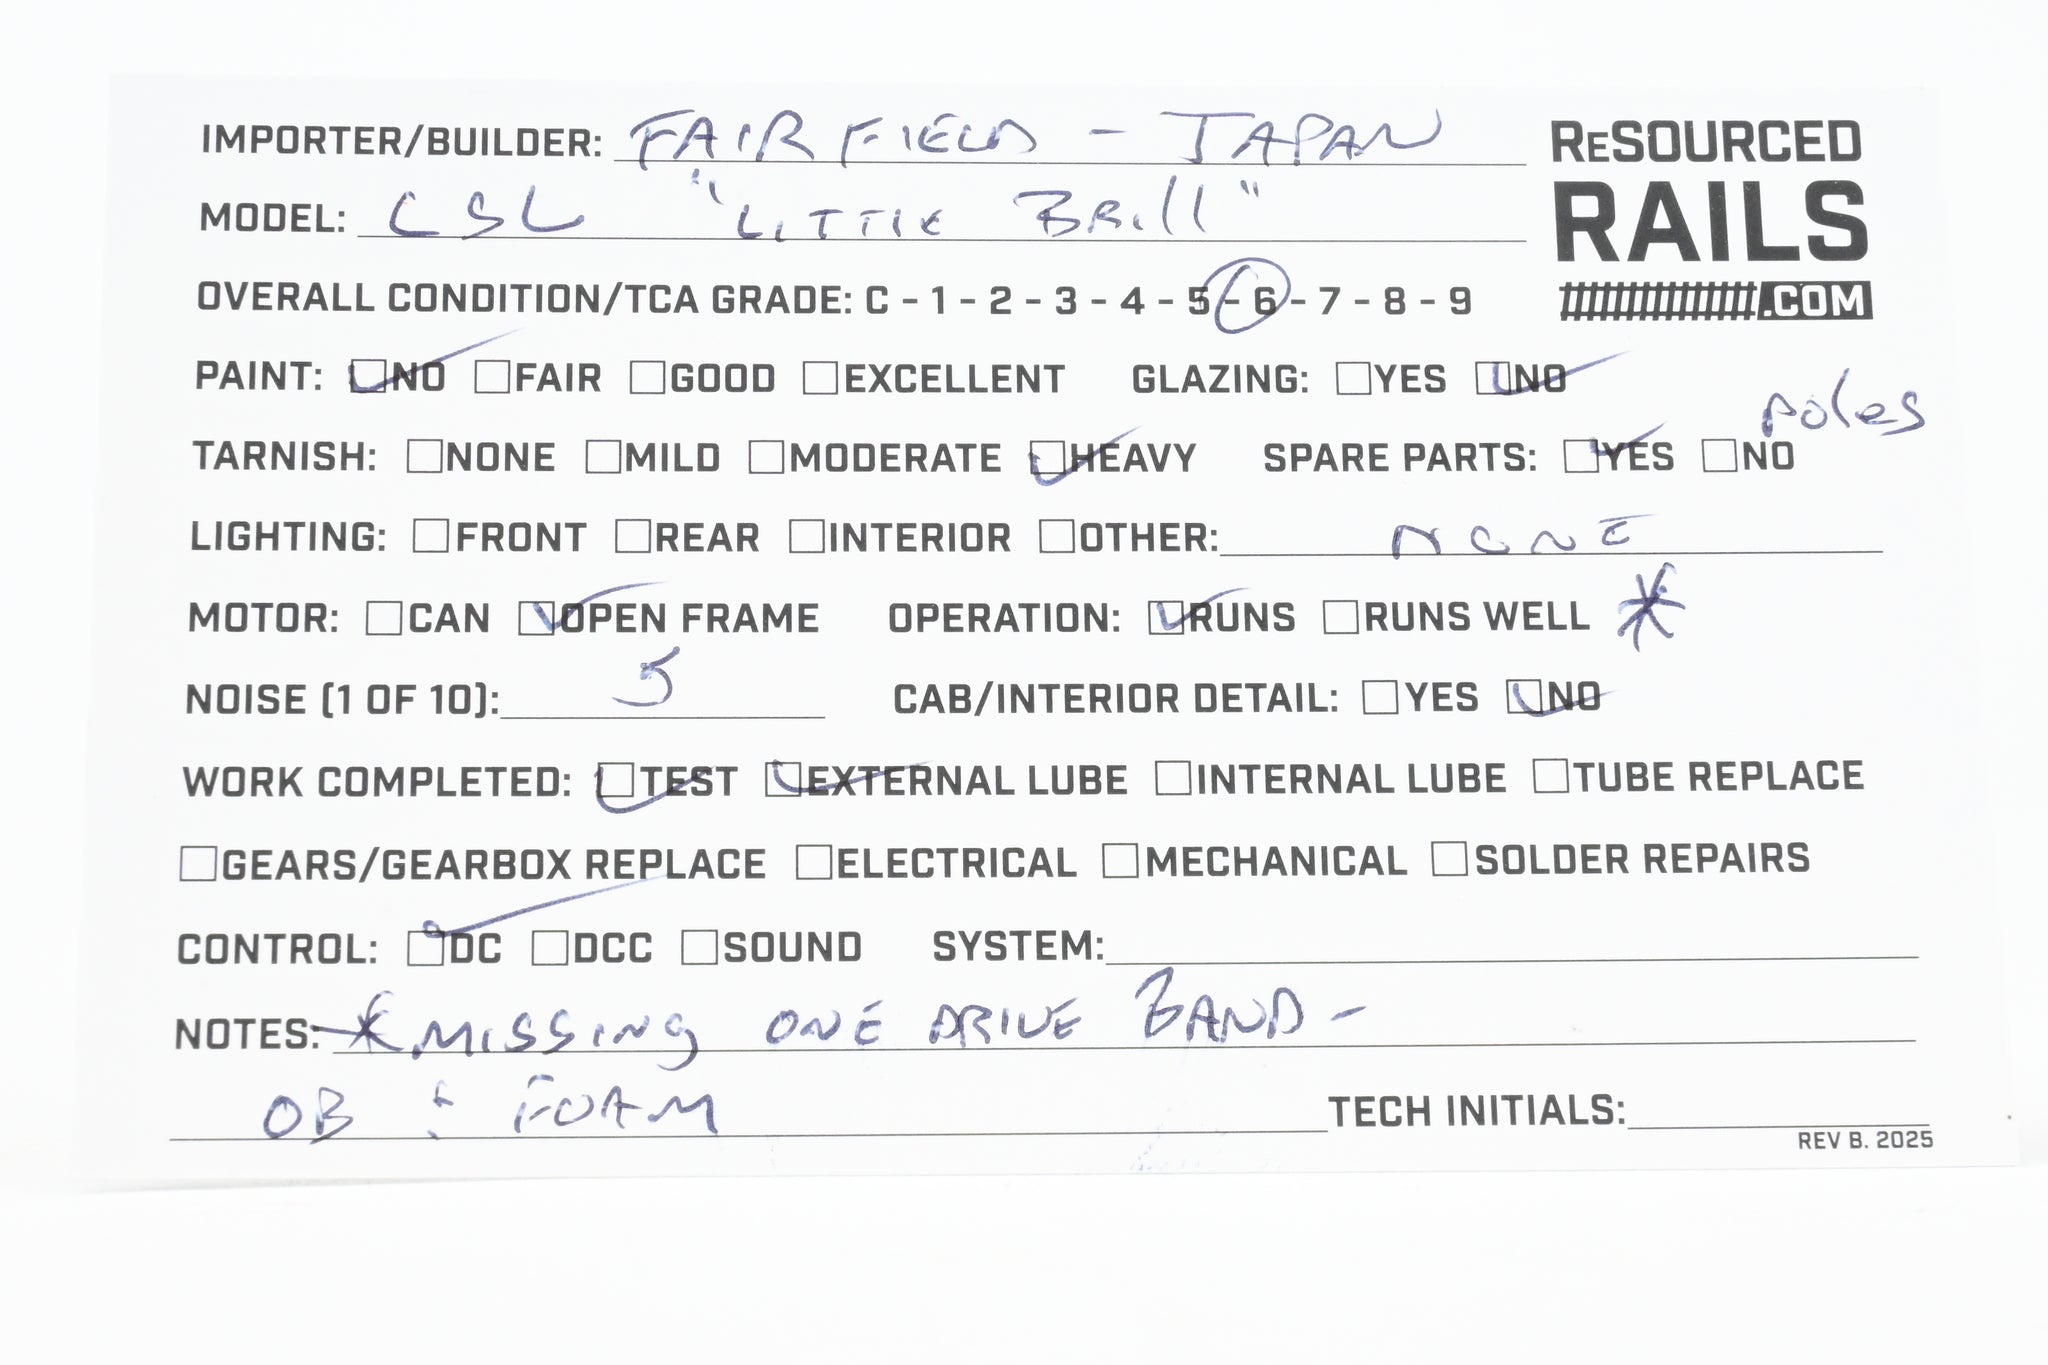 IMPORTER/BUILDER: FAIRFIELD - JAPAN
RESOURCED
RAILS
.COM
MODEL: CSL "LITTLE BRILL"
OVERALL CONDITION/TCA GRADE: C - 1 - 2 - 3 - 4 - 5 - 6 - 7 - 8 - 9
PAINT: ☑NO ☐FAIR ☐GOOD ☐EXCELLENT GLAZING: ☐YES ☑NO
poles
TARNISH: ☐NONE ☐MILD ☐MODERATE ☑HEAVY SPARE PARTS: ☑YES ☐NO
LIGHTING: ☐FRONT ☐REAR ☐INTERIOR ☐OTHER: NONE
MOTOR: ☐CAN ☑OPEN FRAME OPERATION: ☑RUNS ☐RUNS WELL *
NOISE (1 OF 10): 5 CAB/INTERIOR DETAIL: ☐YES ☑NO
WORK COMPLETED: ☑TEST ☑EXTERNAL LUBE ☐INTERNAL LUBE ☐TUBE REPLACE
☐GEARS/GEARBOX REPLACE ☐ELECTRICAL ☐MECHANICAL ☐SOLDER REPAIRS
CONTROL: ☑DC ☐DCC ☐SOUND SYSTEM:
NOTES: * MISSING ONE DRIVE BAND -
OB & FOAM TECH INITIALS:
REV B. 2025